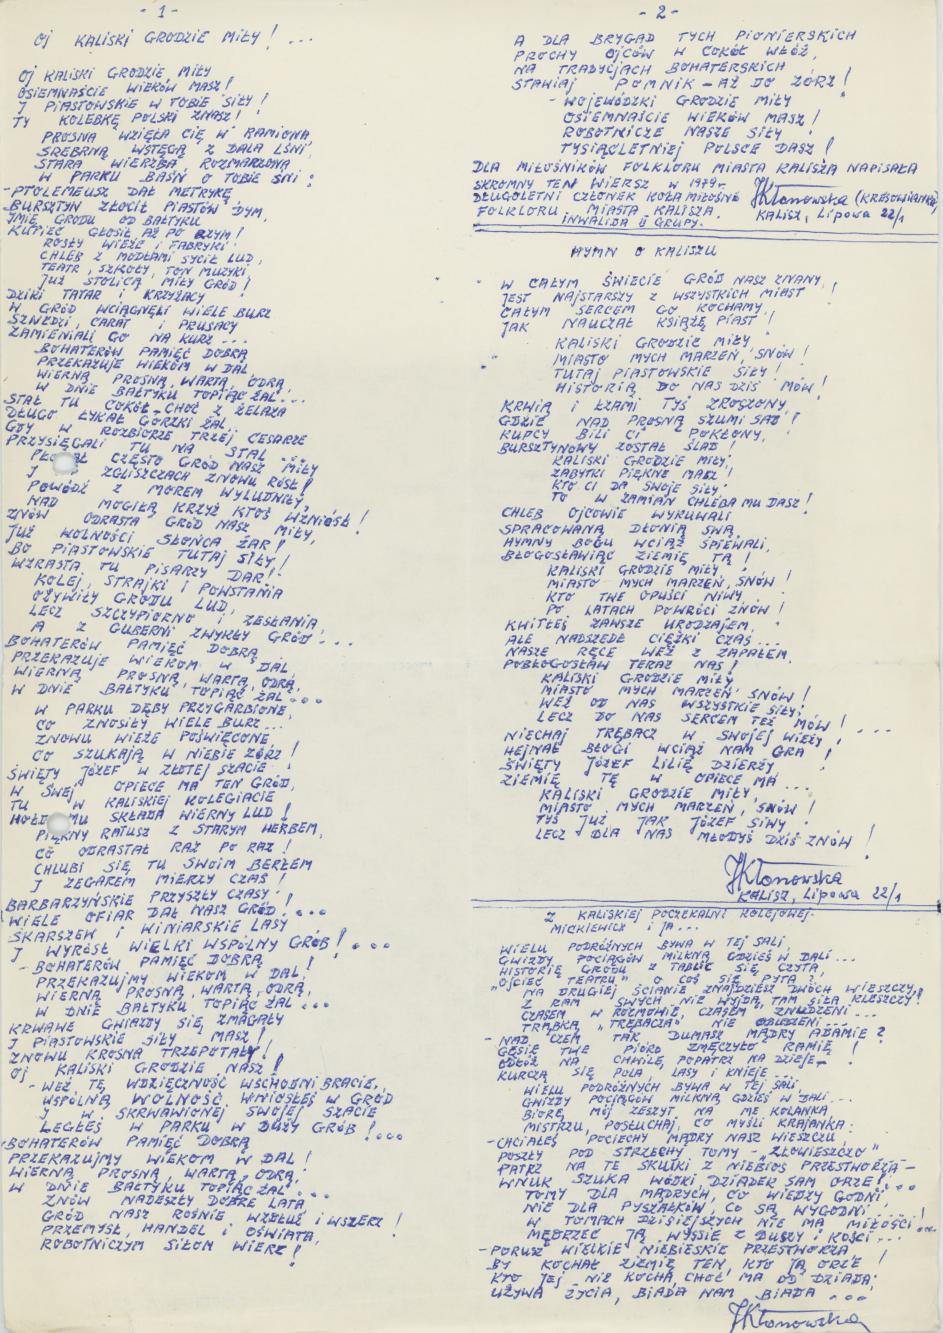 - 1 -
OJ KALISKI GRODZIE MIŁY! ...
OJ KALISKI GRODZIE MIŁY
OSIEMNAŚCIE WIEKÓW MASZ!
I PIASTOWSKIE W TOBIE SIŁY!
TY KOLEBKĘ POLSKI ZNASZ!
PROSNA WZIĘŁA CIĘ W RAMIONA,
SREBRNĄ WSTĘGĄ Z DALA LŚNI,
STARA WIERZBA ROZMARZONA
W PARKU BAŚŃ O TOBIE ŚNI:
- PTOLEMEUSZ DAŁ METRYKĘ
BURSZTYN ZŁOCIŁ PIASTÓW DYM,
IMIĘ GRODU OD BAŁTYKU
KUPIEC GŁOSIŁ AŻ PO RZYM!
ROSŁY WIEŻE I FABRYKI
CHLEB Z MODŁAMI SYCIŁ LUD,
TEATR, SZKOŁY, TON MUZYKI,
JUŻ STOLICĄ MIŁY GRÓD!
DZIKI TATAR I KRZYŻACY
W GRÓD WCIĄGNĘLI WIELE BURZ
SZWEDZI, CARAT I PRUSACY
ZAMIENIALI GO NA KURZ...
BOHATERÓW PAMIĘĆ DOBRĄ
PRZEKAZUJE WIEKOM W DAL
WIERNĄ PROSNĄ, WARTĄ, ODRĄ,
W DNIE BAŁTYKU TOPIĄC ŻAL...
STAŁ TU COKÓŁ CHOĆ Z ŻELAZA
DŁUGO ŁYKAŁ GORZKI ŻAL
GDY W ROZBIORZE TRZEJ CESARZE
PRZYSIĘGALI TU NA STAL...
CZĘSTO GRÓD NASZ MIŁY
I ZGLISZCZACH ZNOWU RÓSŁ!
POWÓDŹ Z MOREM WYLUDNIŁY,
NAD MOGIŁĄ KRZYŻ KTOŚ WZNIÓSŁ!
ZNÓW ODRASTA GRÓD NASZ MIŁY,
JUŻ WOLNOŚCI SŁOŃCA ŻAR!
BO PIASTOWSKIE TUTAJ SIŁY!
WZRASTA TU PISARZY DAR!
KOLEJ, STRAJKI I POWSTANIA
OŻYWIŁY GRODU LUD,
LECZ SZCZYPIORNO I ZESŁANIA
A Z GUBERNI ZWYKŁY GRÓD...
BOHATERÓW PAMIĘĆ DOBRĄ
PRZEKAZUJE WIEKOM W DAL
WIERNĄ PROSNĄ, WARTĄ, ODRĄ,
W DNIE BAŁTYKU TOPIĄC ŻAL...
W PARKU DĘBY PRZYGARBIONE,
CO ZNOSIŁY WIELE BURZ...
ZNOWU WIEŻE POŚWIĘCONE
CO SZUKAJĄ W NIEBIE ZÓRZ!
ŚWIĘTY JÓZEF W ZŁOTEJ SZACIE
W SWEJ OPIECE MA TEN GRÓD,
TU W KALISKIEJ KOLEGIACIE
HOŁD MU SKŁADA WIERNY LUD!
PIĘKNY RATUSZ Z STARYM HERBEM,
CO ODRASTAŁ RAZ PO RAZ!
CHLUBI SIĘ TU SWOIM BERŁEM
I ZEGAREM MIERZY CZAS!
BARBARZYŃSKIE PRZYSZŁY CZASY!
WIELE OFIAR DAŁ NASZ GRÓD...
SKARSZEW I WINIARSKIE LASY
I WYRÓSŁ WIELKI WSPÓLNY GRÓB!...
- BOHATERÓW PAMIĘĆ DOBRĄ
PRZEKAZUJMY WIEKOM W DAL!
WIERNĄ PROSNĄ, WARTĄ, ODRĄ,
W DNIE BAŁTYKU TOPIĄC ŻAL...
KRWAWE GWIAZDY SIĘ ZMAGAŁY
I PIASTOWSKIE SIŁY MASZ!
ZNOWU KROSNA TRZEPOTAŁY!
OJ KALISKI GRODZIE NASZ!
- WEŹ TĘ WDZIĘCZNOŚĆ WSCHODNI BRACIE,
WSPÓLNĄ WOLNOŚĆ WNIOSŁEŚ W GRÓD
I W SKRWAWIONEJ SWOJEJ SZACIE
LEGŁEŚ W PARKU W DUŻY GRÓB!...
- BOHATERÓW PAMIĘĆ DOBRĄ
PRZEKAZUJMY WIEKOM W DAL!
WIERNĄ PROSNĄ, WARTĄ, ODRĄ,
W DNIE BAŁTYKU TOPIĄC ŻAL...
ZNÓW NADESZŁY DOBRE LATA
GRÓD NASZ ROŚNIE WZDŁUŻ I WSZERZ!
PRZEMYSŁ, HANDEL I OŚWIATA,
ROBOTNICZYM SIŁOM WIERZ!
- 2 -
A DLA BRYGAD TYCH PIONIERSKICH
PROCHY OJCÓW W COKÓŁ WŁÓŻ,
NA TRADYCJACH BOHATERSKICH
STAWIAJ POMNIK - AŻ DO ZÓRZ!
- WOJEWÓDZKI GRODZIE MIŁY
OSIEMNAŚCIE WIEKÓW MASZ!
ROBOTNICZE NASZE SIŁY
TYSIĄCLETNIEJ POLSCE DASZ!
DLA MIŁOŚNIKÓW FOLKLORU MIASTA KALISZA NAPISAŁA
SKROMNY TEN WIERSZ W 1979r.
DŁUGOLETNI CZŁONEK KOŁA MIŁOŚNI JKłonowska (KRESOWIANKA)
FOLKLORU MIASTA KALISZA. KALISZ, Lipowa 22/1
INWALIDA II GRUPY.
HYMN O KALISZU
W CAŁYM ŚWIECIE GRÓD NASZ ZNANY,
JEST NAJSTARSZY Z WSZYSTKICH MIAST
CAŁYM SERCEM GO KOCHAMY
JAK NAUCZAŁ KSIĄŻĘ PIAST!
KALISKI GRODZIE MIŁY
MIASTO MYCH MARZEŃ, SNÓW!
TUTAJ PIASTOWSKIE SIŁY!
HISTORIĄ DO NAS DZIŚ MÓW!
KRWIĄ I ŁZAMI TYŚ ZROSZONY
GDZIE NAD PROSNĄ SZUMI SAD!
KUPCY BILI CI POKŁONY,
BURSZTYNOWY ZOSTAŁ ŚLAD!
KALISKI GRODZIE MIŁY,
ZABYTKI PIĘKNE MASZ!
KTO CI DA SWOJE SIŁY
TO W ZAMIAN CHLEBA MU DASZ!
CHLEB OJCOWIE WYKUWALI
SPRACOWANĄ DŁONIĄ SWĄ,
HYMNY BOGU WCIĄŻ ŚPIEWALI,
BŁOGOSŁAWIĄC ZIEMIĘ TĄ!
KALISKI GRODZIE MIŁY!
MIASTO MYCH MARZEŃ, SNÓW!
KTO TWE OPUŚCI NIWY
PO LATACH POWRÓCI ZNÓW!
KWITŁEŚ ZAWSZE URODZAJEM,
ALE NADSZEDŁ CIĘŻKI CZAS...
NASZE RĘCE WEŹ Z ZAPAŁEM,
POBŁOGOSŁAW TERAZ NAS!
KALISKI GRODZIE MIŁY
MIASTO MYCH MARZEŃ, SNÓW!
WEŹ OD NAS WSZYSTKIE SIŁY,
LECZ DO NAS SERCEM TEŻ MÓW!
NIECHAJ TRĘBACZ W SWOJEJ WIEŻY...
HEJNAŁ BŁOGI WCIĄŻ NAM GRA!
ŚWIĘTY JÓZEF LILIĘ DZIERŻY
ZIEMIĘ TĘ W OPIECE MA...
KALISKI GRODZIE MIŁY...
MIASTO MYCH MARZEŃ, SNÓW!
TYŚ JUŻ JAK JÓZEF SIWY
LECZ DLA NAS MŁODYŚ DZIŚ ZNÓW!
JKłonowska
KALISZ, Lipowa 22/1
Z KALISKIEJ POCZEKALNI KOLEJOWEJ.
MICKIEWICZ I JA...
WIELU PODRÓŻNYCH BYWA W TEJ SALI,
GWIZDY POCIĄGÓW MILKNĄ GDZIEŚ W DALI...
HISTORIĘ GRODU Z TABLIC SIĘ CZYTA,
"OJCIEC TEATRU" O COŚ SIĘ PYTA?
NA DRUGIEJ ŚCIANIE ZNAJDZIESZ DWÓCH WIESZCZY,
Z RAM SWYCH NIE WYJDĄ, TAM SIŁA KLESZCZY!
CZASEM W ROZMOWIE, CZASEM ZNUDZENI...
TRĄBKĄ "TRĘBACZA" NIE OBUDZENI...
- NAD CZEM TAK DUMASZ MĄDRY ADAMIE?
GĘSIE TWE PIÓRO ZMĘCZYŁO RAMIĘ!
ODŁÓŻ NA CHWILĘ, POPATRZ NA DZIEJE -
KURCZĄ SIĘ POLA, LASY I KNIEJE...
WIELU PODRÓŻNYCH BYWA W TEJ SALI,
GWIZDY POCIĄGÓW MILKNĄ GDZIEŚ W DALI...
BIORĘ MÓJ ZESZYT NA ME KOLANKA
MISTRZU, POSŁUCHAJ, CO MYŚLI KRAJANKA:
- CHCIAŁEŚ POCIECHY MĄDRY NASZ WIESZCZU,
POSZŁY POD STRZECHY TOMY - "ZŁOWIESZCZO"
PATRZ NA TE SKUTKI Z NIEBIOS PRZESTWORZA -
WNUK SZUKA WÓDKI, DZIADEK SAM ORZE!...
TOMY DLA MĄDRYCH, CO WIEDZY GODNI
NIE DLA PYSZAŁKÓW, CO SĄ WYGODNI...!
W TOMACH DZISIEJSZYCH NIE MA MIŁOŚCI!...
MĘDRZEC JĄ WYSSIE Z DUSZY I KOŚCI...
- PORUSZ WIELKIE NIEBIESKIE PRZESTWORZA
BY KOCHAŁ ZIEMIĘ TEN, KTO JĄ ORZE!
KTO JEJ NIE KOCHA, CHOĆ MA OD DZIADA,
UŻYWA ŻYCIA, BIADA NAM BIADA...
JKłonowska